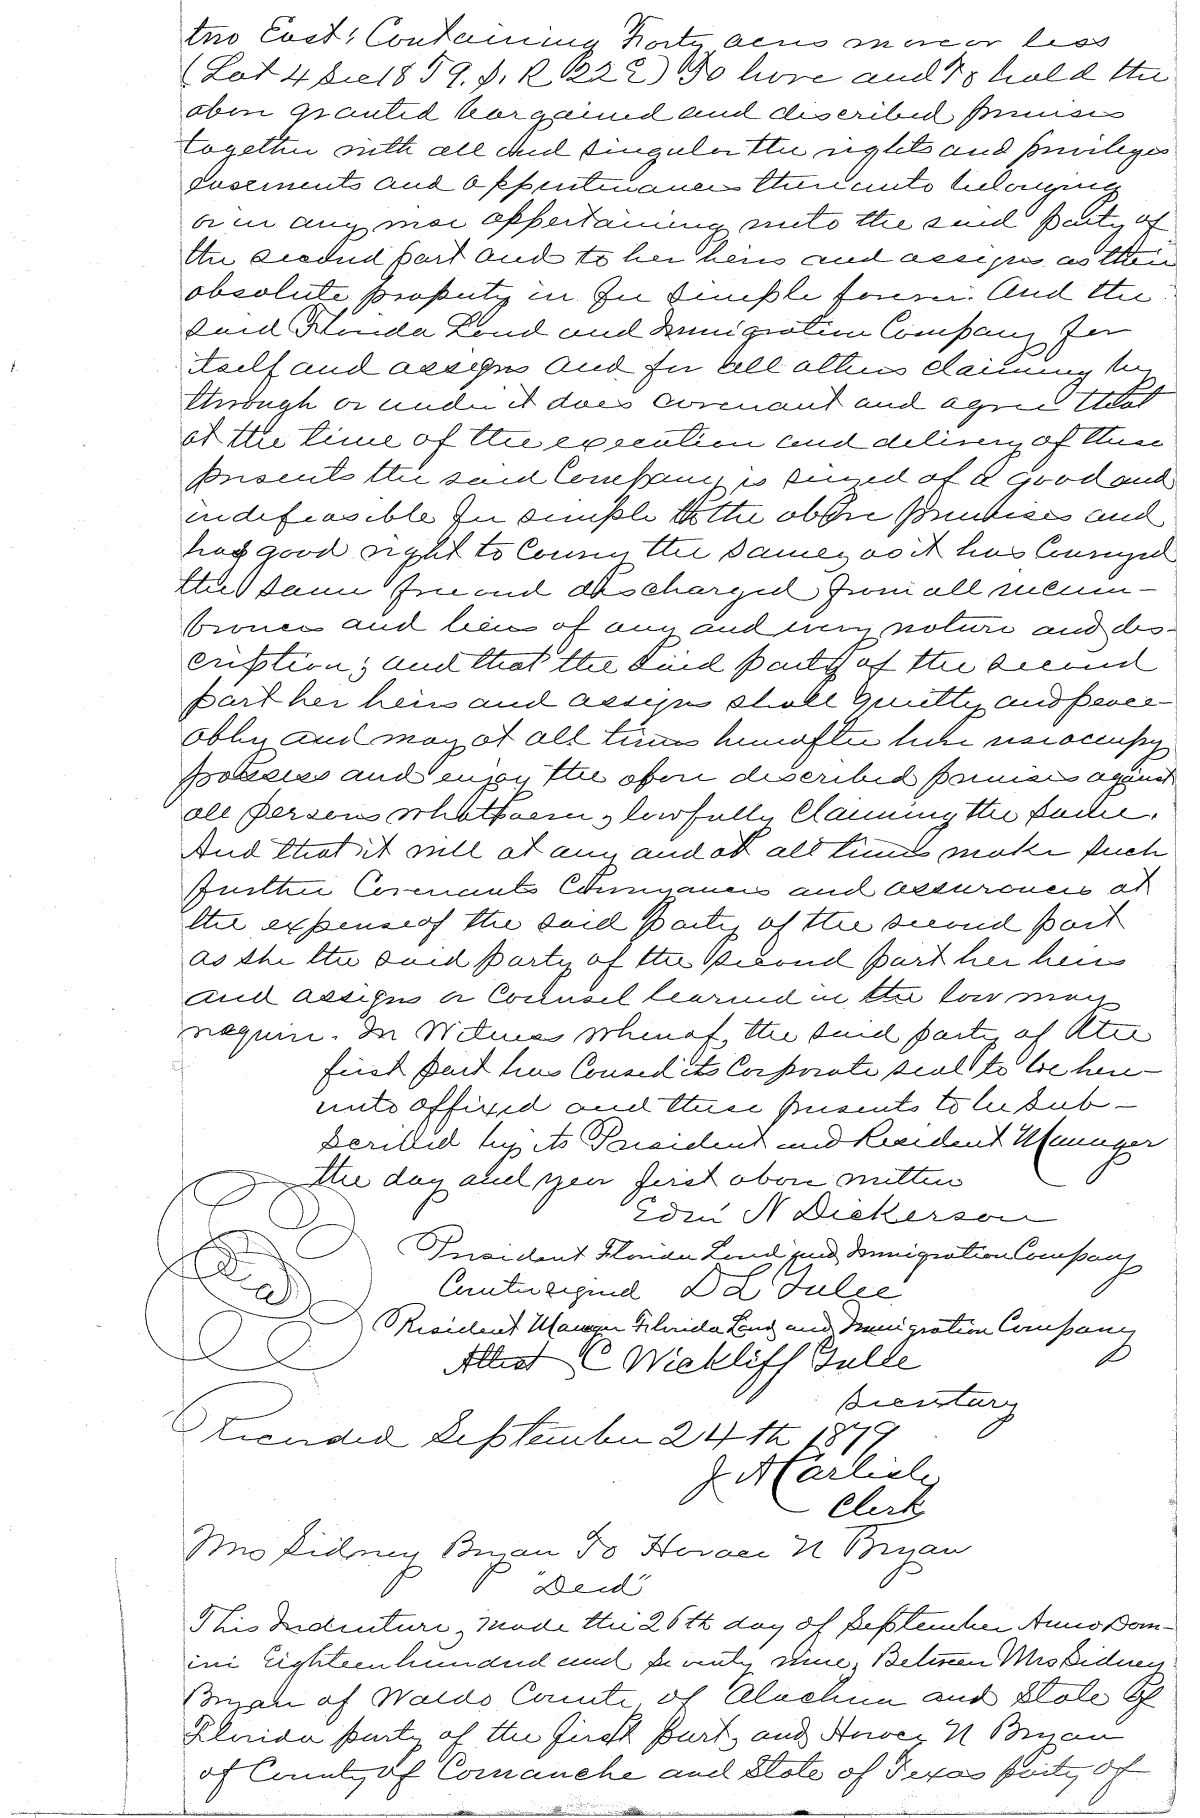 two East; Containing Forty acres more or less
(Lot 4 Sec 18 T 9. S. R 22 E) To have and To hold the
above granted bargained and described premises
together with all and singular the rights and privileges
easements and appurtenances thereunto belonging
or in any wise appertaining unto the said party of
the second part and to her heirs and assigns as their
absolute property in fee simple forever. And the
said Florida Land and Immigration Company for
itself and assigns and for all others claiming by
through or under it does covenant and agree that
at the time of the execution and delivery of these
presents the said Company is seized of a good and
indefeasible fee simple to the above premises and
has good right to convey the same, as it has Conveyed
the same free and discharged from all incum-
brances and liens of any and every nature and des-
cription; and that the said party of the second
part her heirs and assigns shall quietly and peace-
ably and may at all times hereafter have use occupy
possess and enjoy the afore described premises against
all persons whatsoever, lawfully Claiming the same.
And that it will at any and at all times make such
further Covenants Conveyances and assurances at
the expense of the said Party of the second part
as she the said party of the second part her heirs
and assigns or Counsel learned in the law may
require. In Witness whereof, the said party of the
first part has Caused its Corporate seal to be here-
unto affixed and these presents to be sub-
scribed by its President and Resident Manager
the day and year first above written
Edw N Dickerson
President Florida Land and Immigration Company
Countersigned D L Yulee
Resident Manager Florida Land and Immigration Company
Attest C Wickliff Yulee
Secretary
Recorded September 24th 1879
J A Carlisle
Clerk
Mrs Sidney Bryan To Horace N Bryan
"Deed"
This Indenture, made the 26th day of September Anno Dom-
ini Eighteen hundred and Seventy nine, Between Mrs Sidney
Bryan of Waldo County of Alachua and State of
Florida party of the first part, and Horace N Bryan
of County of Comanche and State of Texas party of